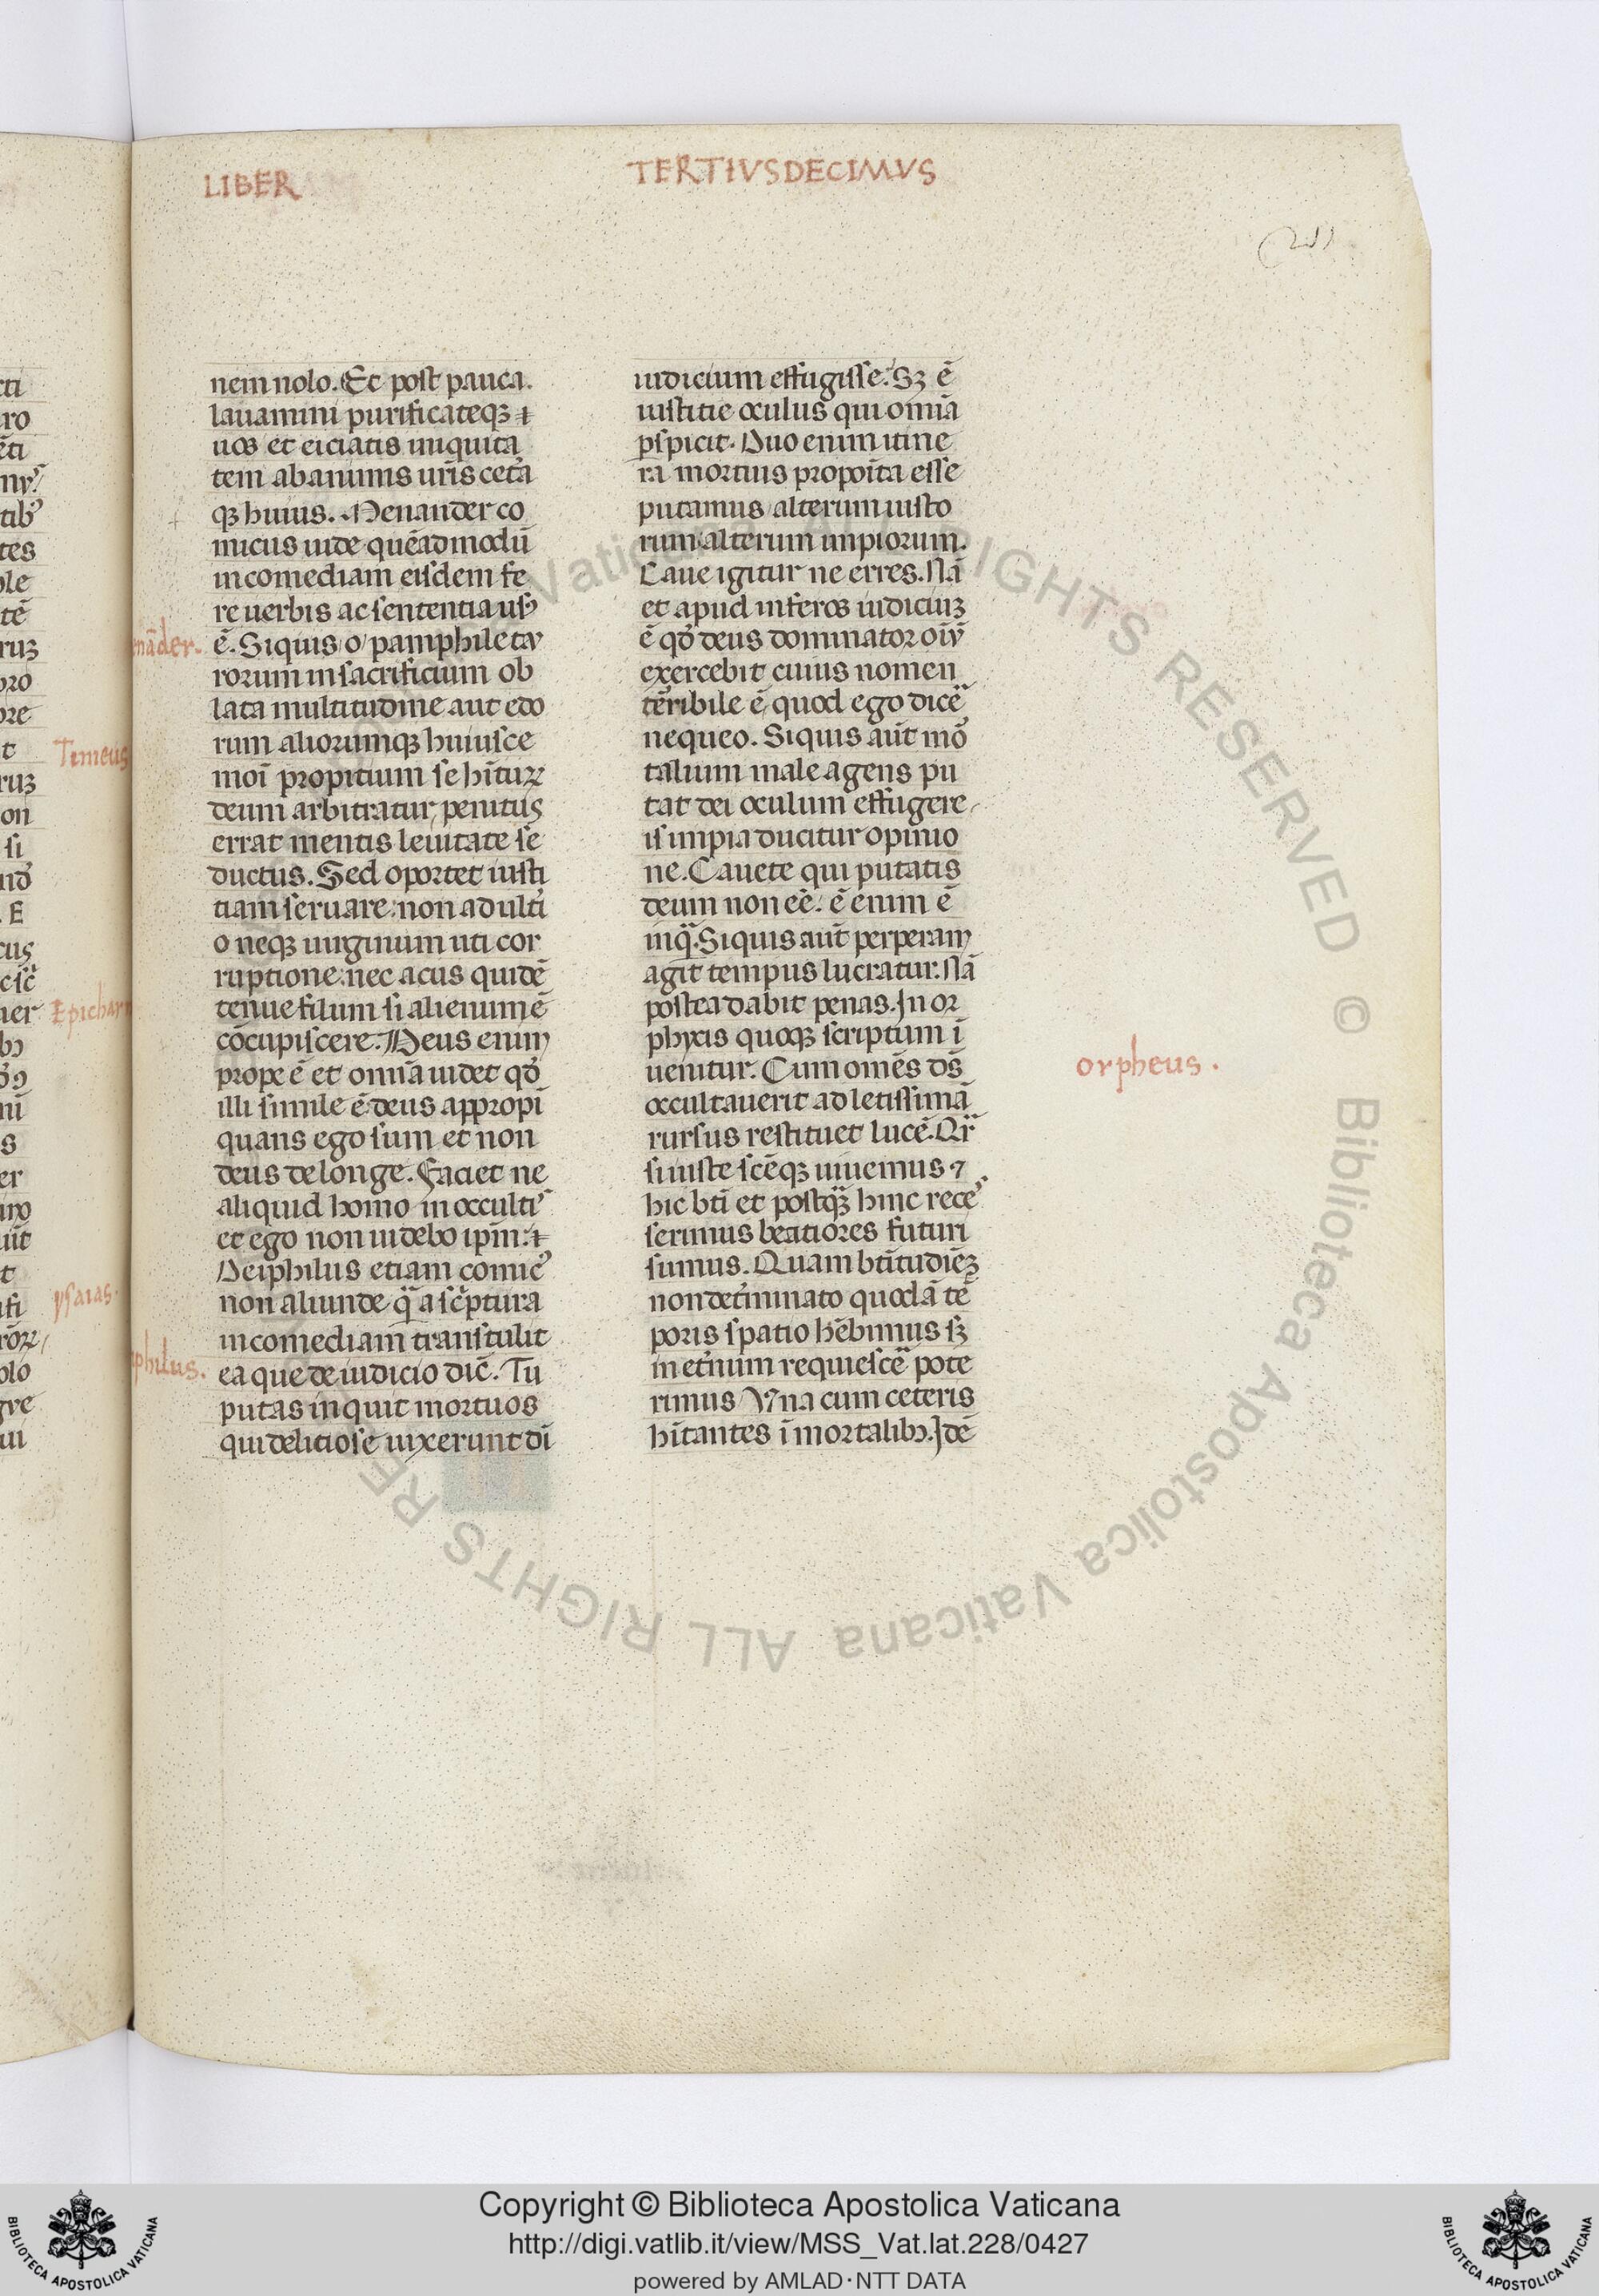 LIBER
TERTIVSDECIMVS
nem nolo. Et post pauca.
lauamini purificateqꝫ
uos et eiciatis iniquita
tem ab animis ur̄is cet᾽a
qꝫ huius. Menander co
micus uide quēadmodū
in comediam eisdem fe
re uerbis ac sententia us᾽
ē. Siquis o pamphile ta
rorum in sacrificium ob
lata multitudine aut edo
rum aliorumqꝫ huiusce
moī propitium se hītuꝝ
deum arbitratur, penitus
errat mentis leuitate se
ductus. Sed oportet iusti
tiam seruare: non adulti
o neqꝫ uirginum uti cor
ruptione: nec acus quidē
tenue filum si alienum ē
cōcupiscere. Deus enim
prope ē et om̄ia uidet qd᾽
illi simile ē deus appropī
quans ego sum et non
deus de longe. Faciet ne
aliquid homo in occulti᾽
et ego non uidebo ip̄m.
Deiphilus etiam comic᾽
non aliunde q̄ a sc̄ptura
in comediam transtulit
ea que de iudicio dic̄. Tu
putas inquit mortuos
qui delitiose uixerunt dī
iudicium effugisse. Sꝫ ē
iustitie oculus qui omīa
pspicit. Duo enim itine
ra mortuis propoīta esse
putamus alterum iusto
rum alterum impiorum.
Caue igitur ne erres. Nā
et apud inferos iudiciuꝫ
ē qd᾽ deus dominator oīu᷒
exercebit cuius nomen
terribile ē quod ego dicē
nequeo. Siquis aūt mo᾽
talium male agens pu
tat dei oculum effugere
is impia ducitur opinio
ne. Cauete qui putatis
deum non eē. ē enim ē
inq̄. Siquis aūt perperam
agit tempus lucratur. Nā
postea dabit penas. In or
phycis quoqꝫ scriptum ī
uenitur. Cum omēs ds̄
occultauerit ad letissimā
rursus restituet lucē. Qr̄
si iuste scēqꝫ uiuemus ⁊
hic btī et postq̄ꝫ hinc rece᾽
serimus beatiores futuri
sumus. Quam btītudiēꝫ
non det᾽minato quodā tē
poris spatio hēbimus sꝫ
in et᾽num requiescē pote
rimus Vna cum ceteris
hītantes ī mortalibꝫ. Idē
nāder.
Timeus
Epichar
ysaias.
philus.
orpheus.
Copyright © Biblioteca Apostolica Vaticana
http://digi.vatlib.it/view/MSS_Vat.lat.228/0427
powered by AMLAD·NTT DATA
BIBLIOTECA APOSTOLICA VATICANA
BIBLIOTECA APOSTOLICA VATICANA
© Biblioteca Apostolica Vaticana ALL RIGHTS RESERVED